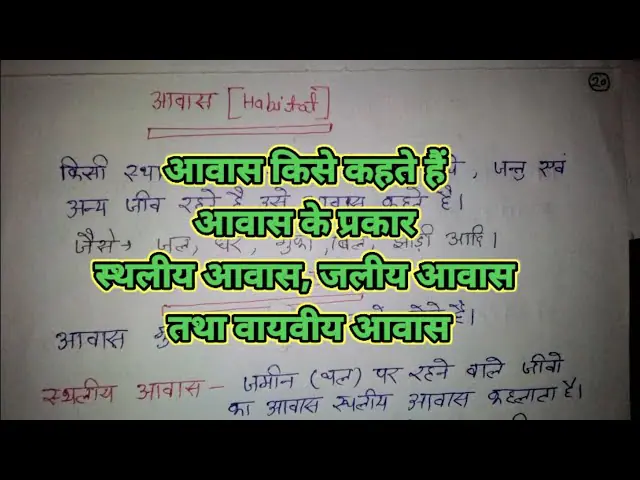 20
आवास [Habitat]
किसी स्था , जन्तु एवं
आवास किसे कहते हैं
अन्य जीव रहते है उसे आवास कहते है।
आवास के प्रकार
जैसे→ जल, घर, गुफा, बिल, झाड़ी आदि।
स्थलीय आवास, जलीय आवास
तथा वायवीय आवास
आवास है।
स्थलीय आवास – जमीन (थल) पर रहने वाले जीवो
का आवास स्थलीय आवास कहलाता है।